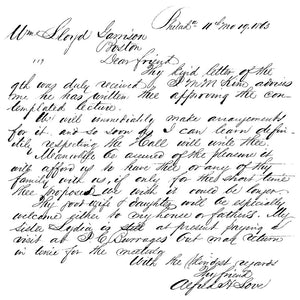 Philada 11th mo 19, 1863
Wm Lloyd Garrison
Boston
Dear friend
Thy kind letter of the
9th was duly received & J. M. M. Kim advises
me he has written thee approving the con-
templated lecture.
We will immediately make arrangements
for it. and so soon as I can learn defin-
itely respecting the Hall will write thee.
Meanwhile be assured of the pleasure it
will afford us to have thee or any of thy
family with us, if only for the short time
thee proposes, we wish it could be longer.
Thy good wife & daughter will be especially
welcome either to my house or fathers. My
sister Lydia is at present paying a
visit at but may return
in time for the meeting
With the kindest regards
Thy friend
Alfred H Love